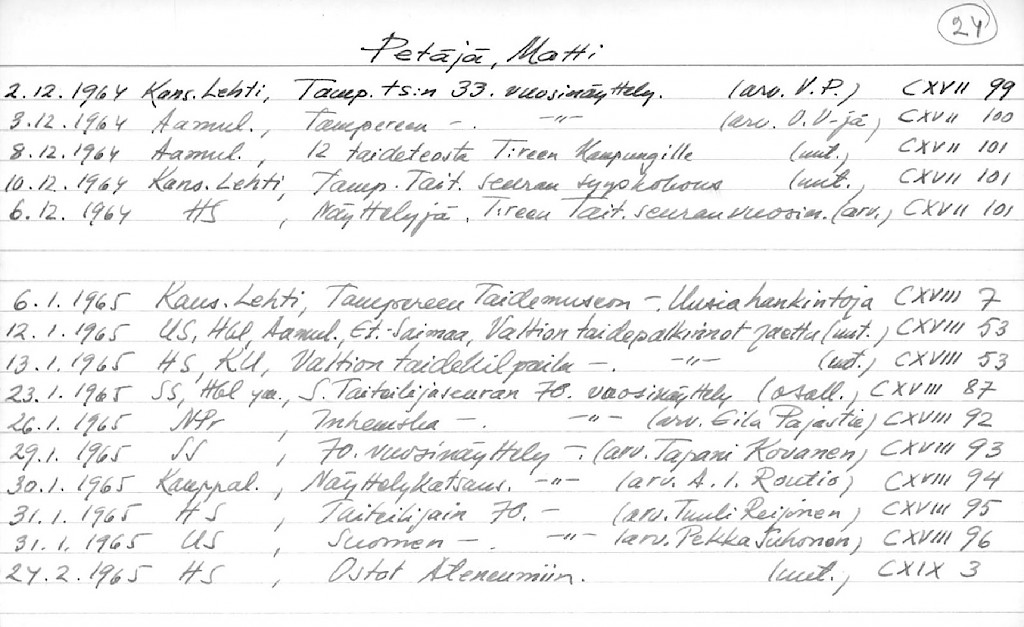 24
Petäjä, Matti
2.12.1964 Kans. Lehti, Tamp. ts:n 33. vuosinäyttely. (arv. V.P.) CXVII 99
3.12.1964 Aamul., Tampereen -. -"- (arv. O.V-jä) CXVII 100
8.12.1964 Aamul., 12 taideteosta T:reen Kaupungille (uut.) CXVII 101
10.12.1964 Kans. Lehti, Tamp. Tait. seuran syyskokous (uut., CXVII 101
6.12.1964 HS, Näyttelyjä, T:reen Tait. seuran vuosin. (arv.) CXVII 101
6.1.1965 Kans. Lehti, Tampereen Taidemuseon -. Uusia hankintoja CXVIII 7
12.1.1965 US, Hbl, Aamul., Et.-Saimaa, Valtion taidepalkinnot jaettu (uut.) CXVIII 53
13.1.1965 HS, KU, Valtion taidekilpailu -. -"- (uut.) CXVIII 53
23.1.1965 SS, Hbl ym., S. Taiteilijaseuran 70. vuosinäyttely (osall., CXVIII 87
26.1.1965 NPr, Inhemska -. -"- (arv. Eila Pajastie) CXVIII 92
29.1.1965 SS, 70. vuosinäyttely -. (arv. Tapani Kovanen) CXVIII 93
30.1.1965 Kauppal., Näyttelykatsaus. -"- (arv. A.I. Routio) CXVIII 94
31.1.1965 HS, Taiteilijain 70. - (arv. Tuuli Reijonen) CXVIII 95
31.1.1965 US, Suomen -. -"- (arv. Pekka Suhonen) CXVIII 96
24.2.1965 HS, Ostot Ateneumiin. (uut., CXIX 3